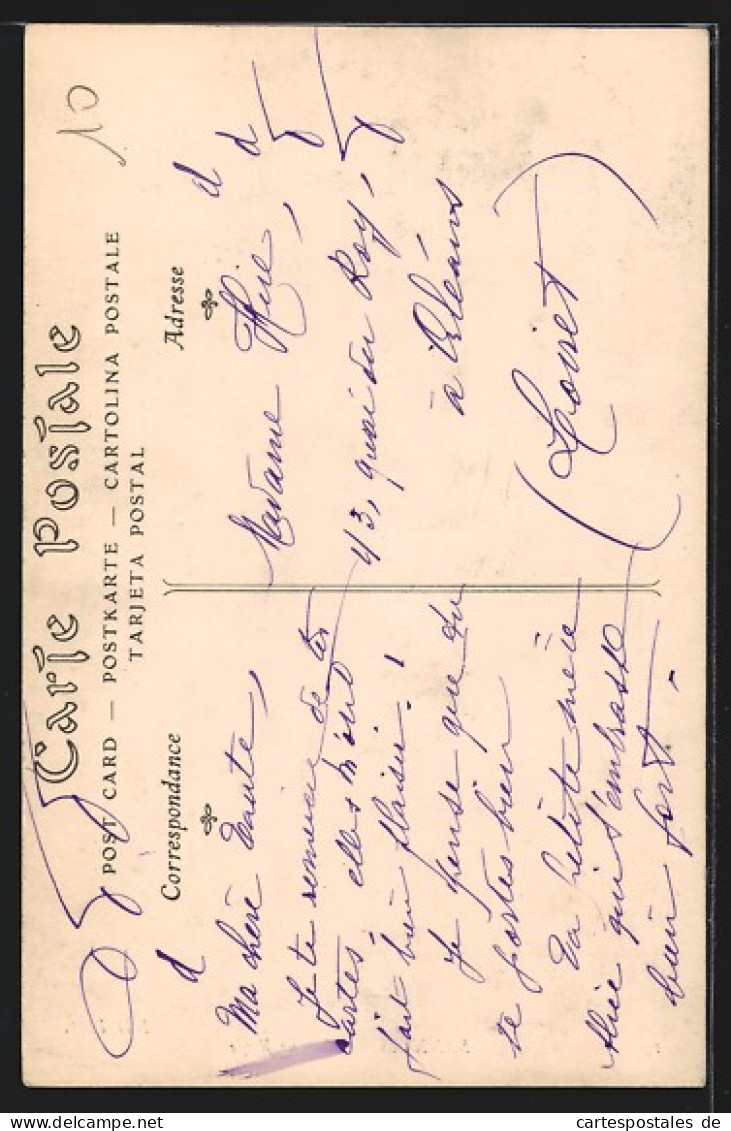 10
Carte Postale
POST CARD — POSTKARTE — CARTOLINA POSTALE
TARJETA POSTAL
Correspondance
Ma chère Tante,
Je te remercie de tes
cartes, elles m'ont
fait bien plaisir!
Je pense que tu
te portes bien
Ta petite nièce
Alice qui t'embrasse
bien fort.
Adresse
Madame
43, quai du Roy,
à Orléans
(Loiret)
cartespostales de